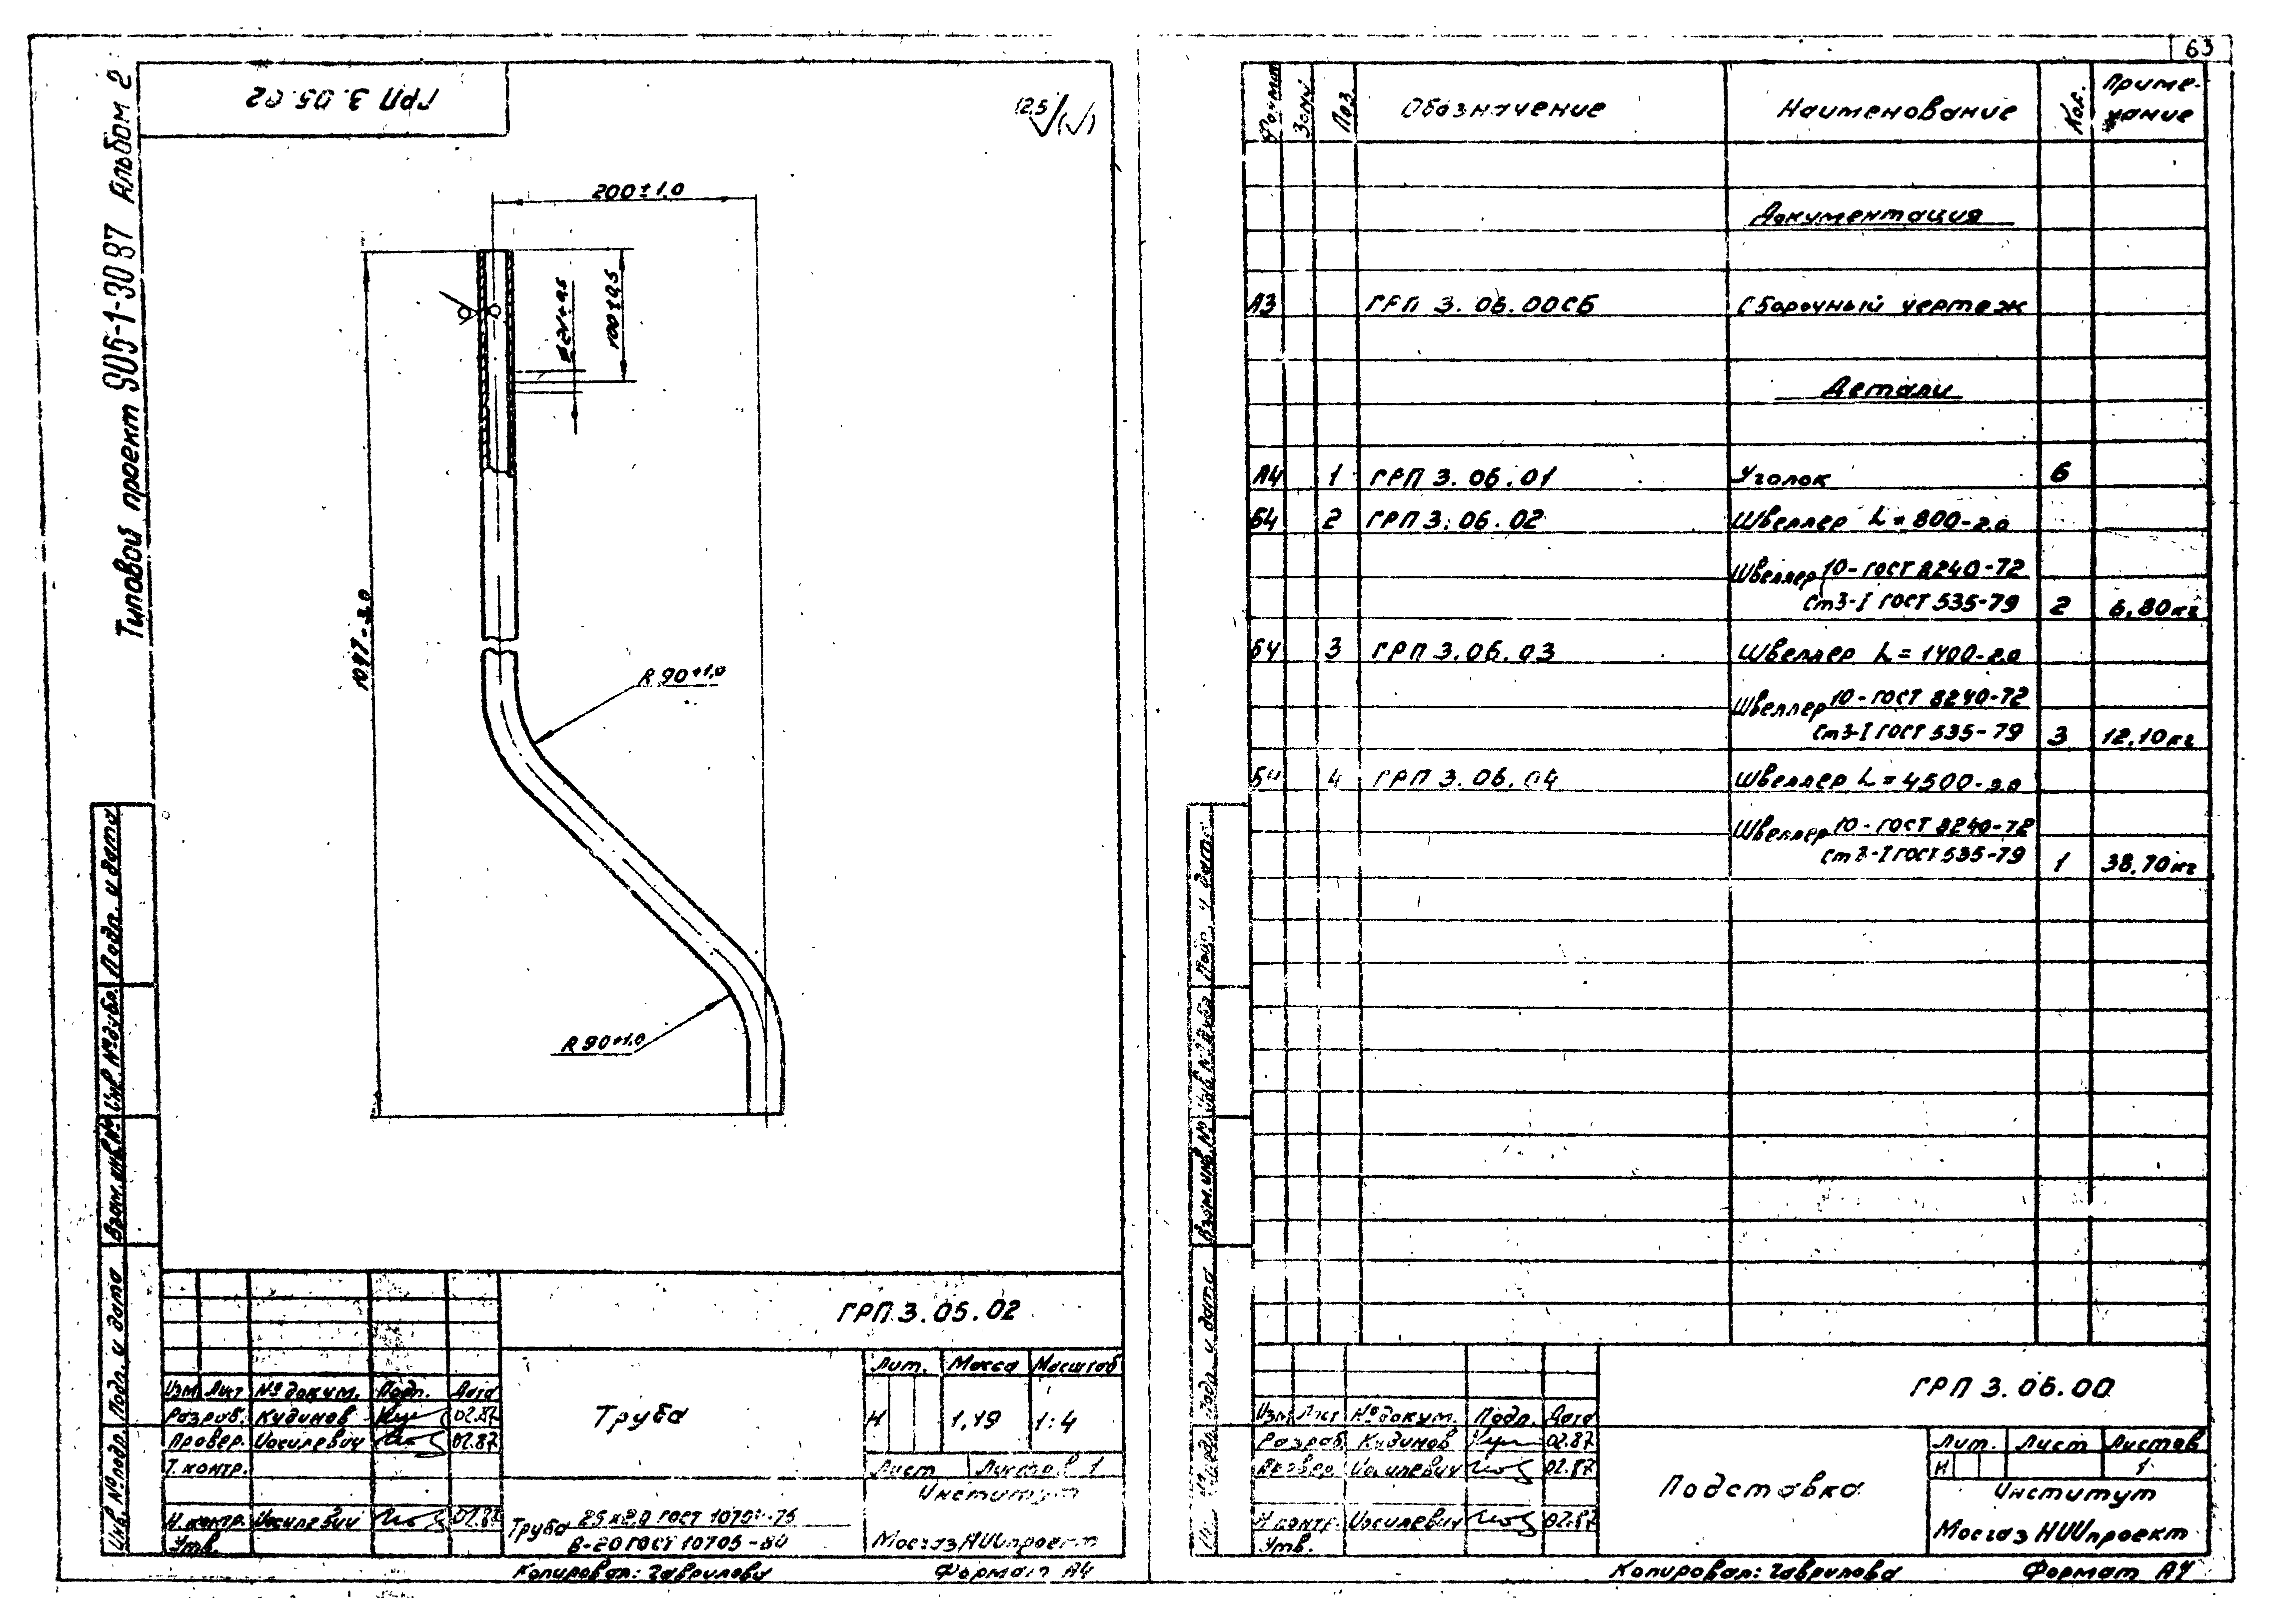 63
Типовой проект 905-1-30.87 Альбом 2
ГРП 3.05.02
12,5
200±1,0
100±0,5
1097-3,0
R 90+1,0
R 90+1,0
Подп. и дата
Инв.№дубл.
Взам.инв.№
Подп. и дата
Инв.№подл.
ГРП 3.05.02
Изм Лист №докум. Подп. Дата
Разраб. Кудинов 02.87
Провер. Иосилевич 02.87
Т.контр.
Н.контр. Иосилевич 02.87
Утв.
Труба
Лит. Масса Масштаб
И 1,19 1:4
Лист Листов 1
Институт
МосгазНИИпроект
Труба 25х2,0 ГОСТ 10704-76
В-20 ГОСТ 10705-80
Копировал: Гаврилова Формат А4
Формат Зона Поз. Обозначение Наименование Кол. Приме-
чание
Документация
А3 ГРП 3.06.00СБ Сборочный чертеж
Детали
А4 1 ГРП 3.06.01 Уголок 6
Б4 2 ГРП 3.06.02 Швеллер L=800-2,0
Швеллер 10-ГОСТ 8240-72
Ст3-I ГОСТ 535-79 2 6,80кг
Б4 3 ГРП 3.06.03 Швеллер L=1400-2,0
Швеллер 10-ГОСТ 8240-72
Ст3-I ГОСТ 535-79 3 12,10кг
Б4 4 ГРП 3.06.04 Швеллер L=4500-3,0
Швеллер 10-ГОСТ 8240-72
Ст3-I ГОСТ 535-79 1 38,70кг
Подп. и дата
Инв.№дубл.
Взам.инв.№
Подп. и дата
№подл.
ГРП 3.06.00
Изм Лист №докум. Подп. Дата
Разраб. Кудинов 02.87
Провер. Иосилевич 02.87
Н.контр. Иосилевич 02.87
Утв.
Подставка
Лит. Лист Листов
И 1
Институт
МосгазНИИпроект
Копировал: Гаврилова Формат А4